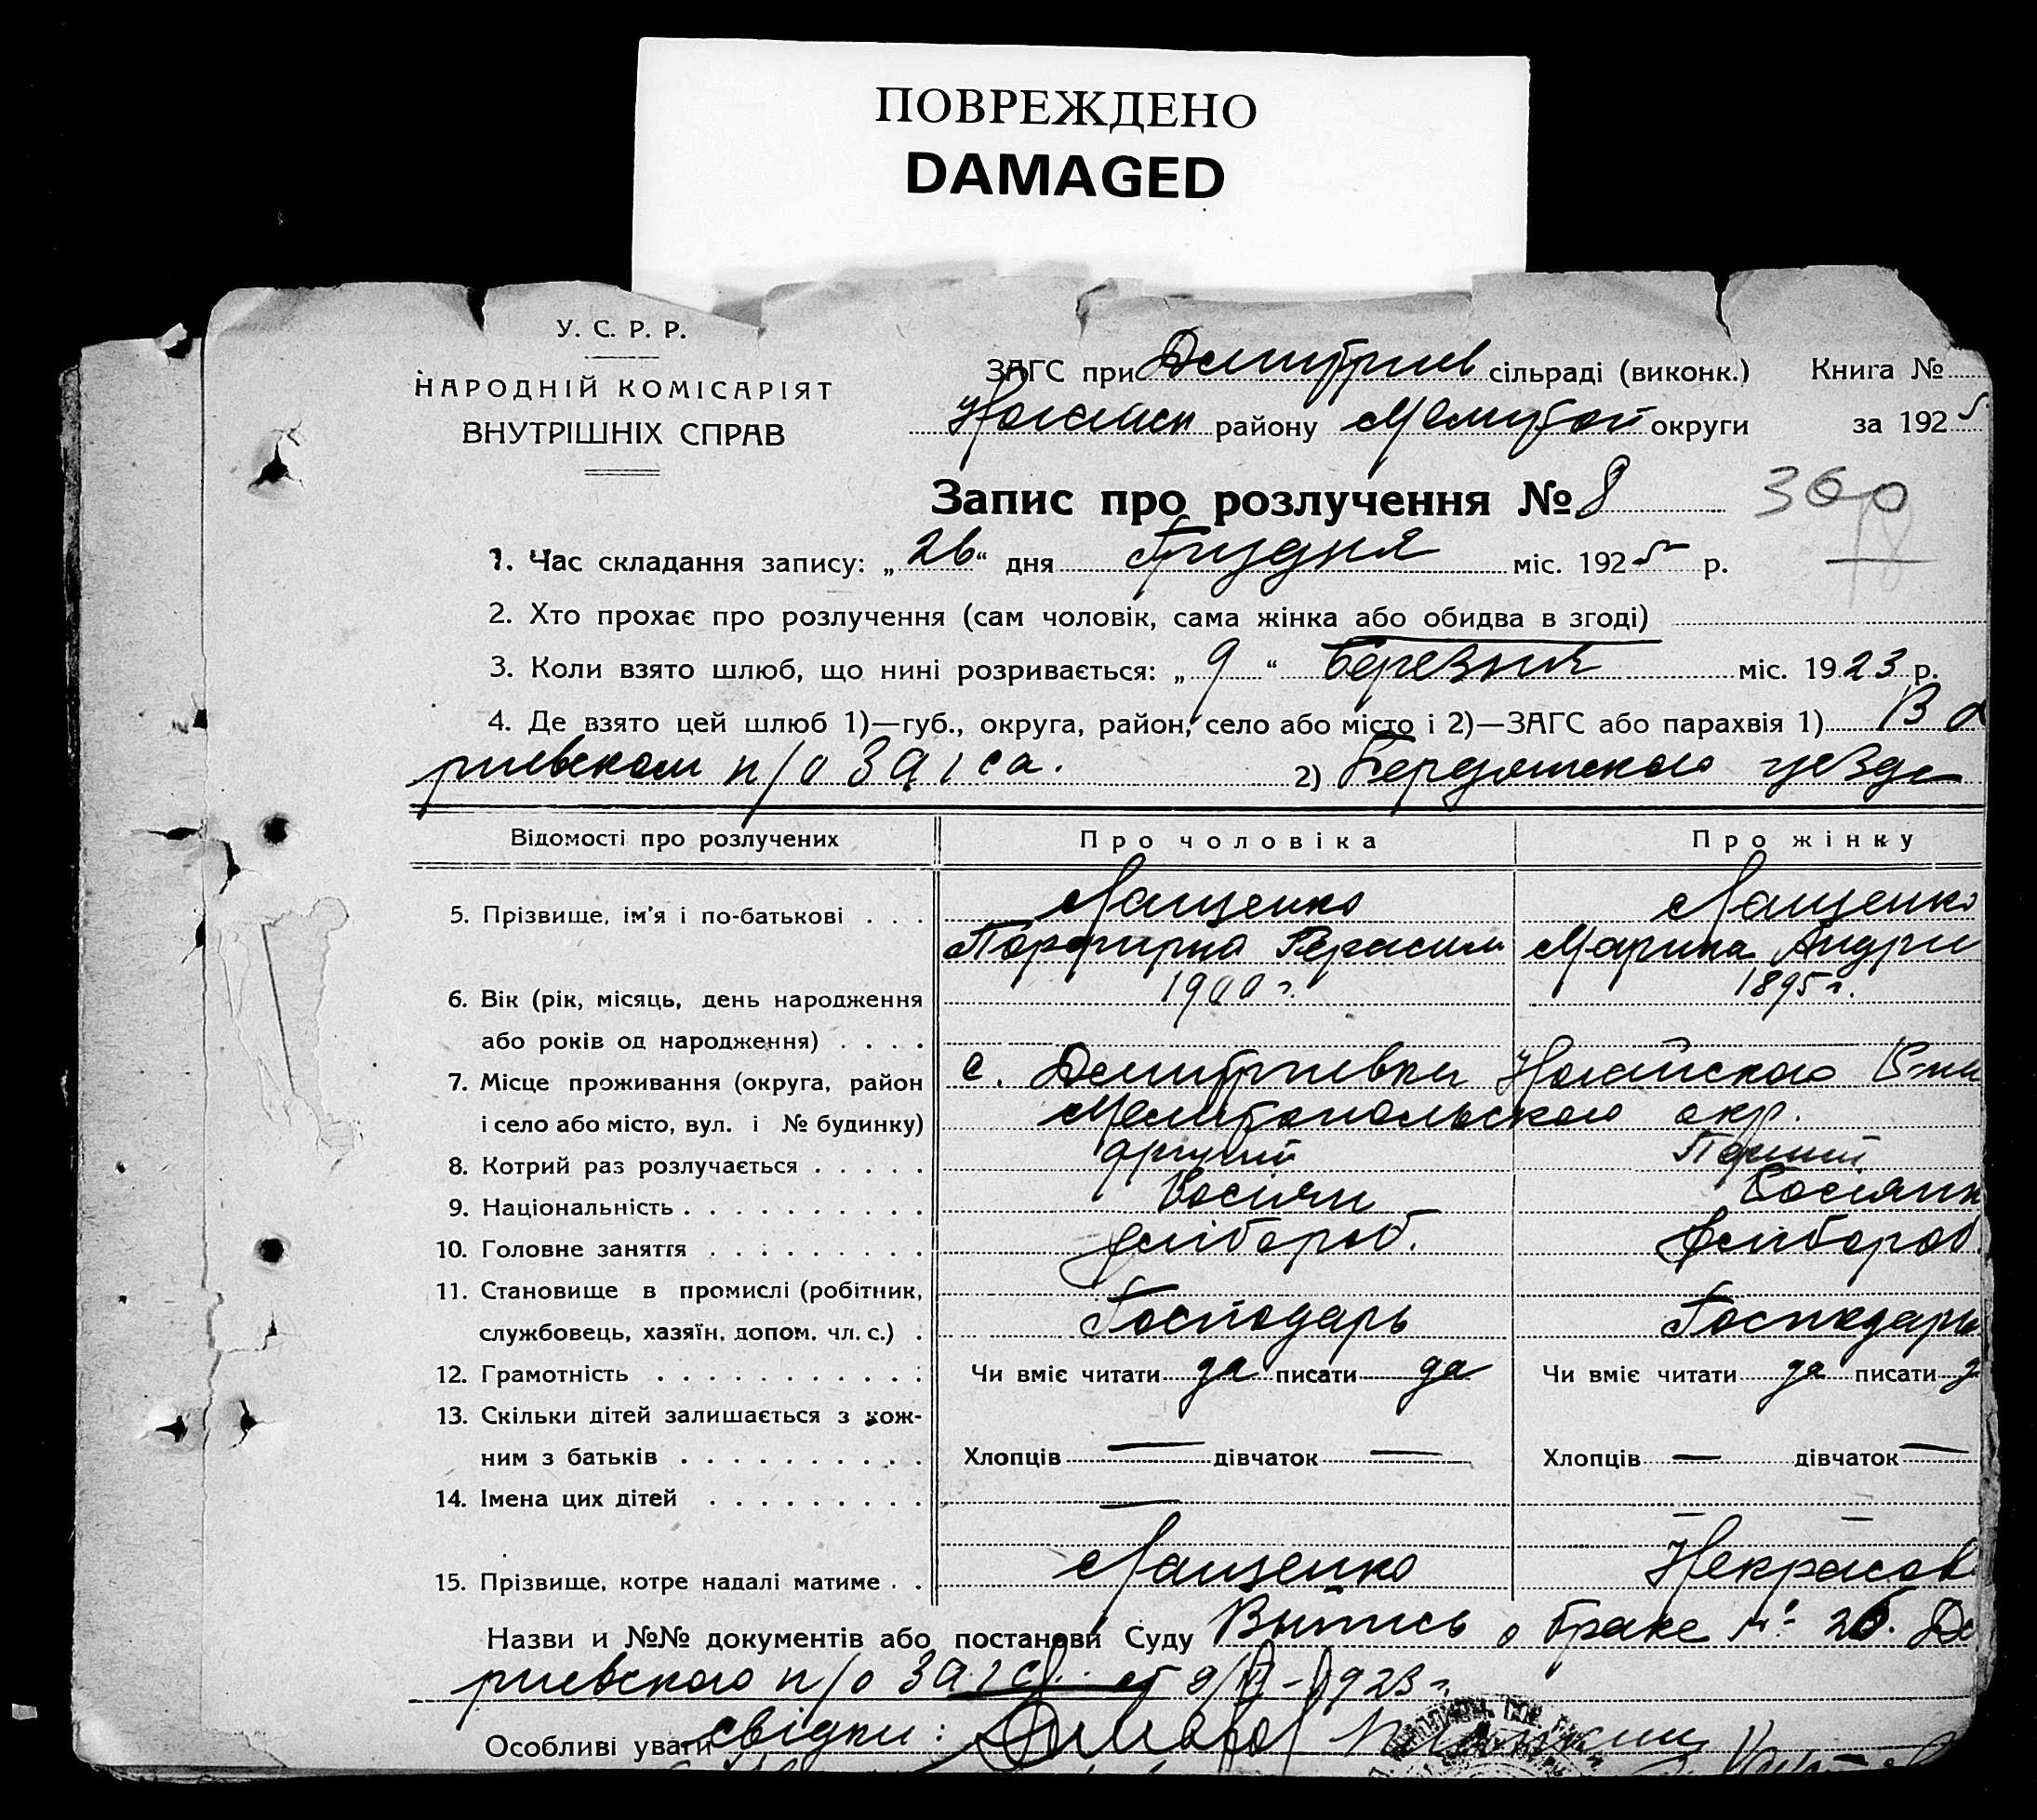 ПОВРЕЖДЕНО
DAMAGED
У. С. Р. Р.
НАРОДНІЙ КОМІСАРІЯТ
ВНУТРІШНІХ СПРАВ
ЗАГС при Дмитриев сільраді (виконк.) Книга №
Ногайск району Мелитоп округи за 1925
Запис про розлучення № 8
360
18
1. Час складання запису: „26“ дня Грудня міс. 1925 р.
2. Хто прохає про розлучення (сам чоловік, сама жінка або обидва в згоді)
3. Коли взято шлюб, що нині розривається: „9“ Березня міс. 1923 р.
4. Де взято цей шлюб 1)—губ., округа, район, село або місто і 2)—ЗАГС або парахвія 1) В
риевском п/о Загса. 2) Бердянского уезда
Відомості про розлучених Про чоловіка Про жінку
5. Прізвище, ім’я і по-батькові . . . Лащенко Лащенко
Порфирио Герасим Марина Андри
6. Вік (рік, місяць, день народження 1900 г. 1895 г.
або років од народження) . . . .
7. Місце проживання (округа, район с. Дмитриевки Ногайского Р-на
і село або місто, вул. і № будинку) Мелитопольского окр.
8. Котрий раз розлучається . . . . . другий Перший
9. Національність . . . . . . . . . . Росіян Росіянк
10. Головне заняття . . . . . . . . . хлібороб. хлібороб.
11. Становище в промислі (робітник,
службовець, хазяїн, допом. чл. с.) . Господарь Господарь
12. Грамотність . . . . . . . . . . . Чи вміє читати да писати да Чи вміє читати да писати д
13. Скільки дітей залишається з кож-
ним з батьків . . . . . . . . . . Хлопців — дівчаток — Хлопців — дівчаток —
14. Імена цих дітей . . . . . . . . . — — —
15. Прізвище, котре надалі матиме . . Лащенко Некрасов
Назви и №№ документів або постанови Суду Выпись о браке № 26.
риевского п/о Загса. от 9/III-1923 г.
Особливі уваги свідки: